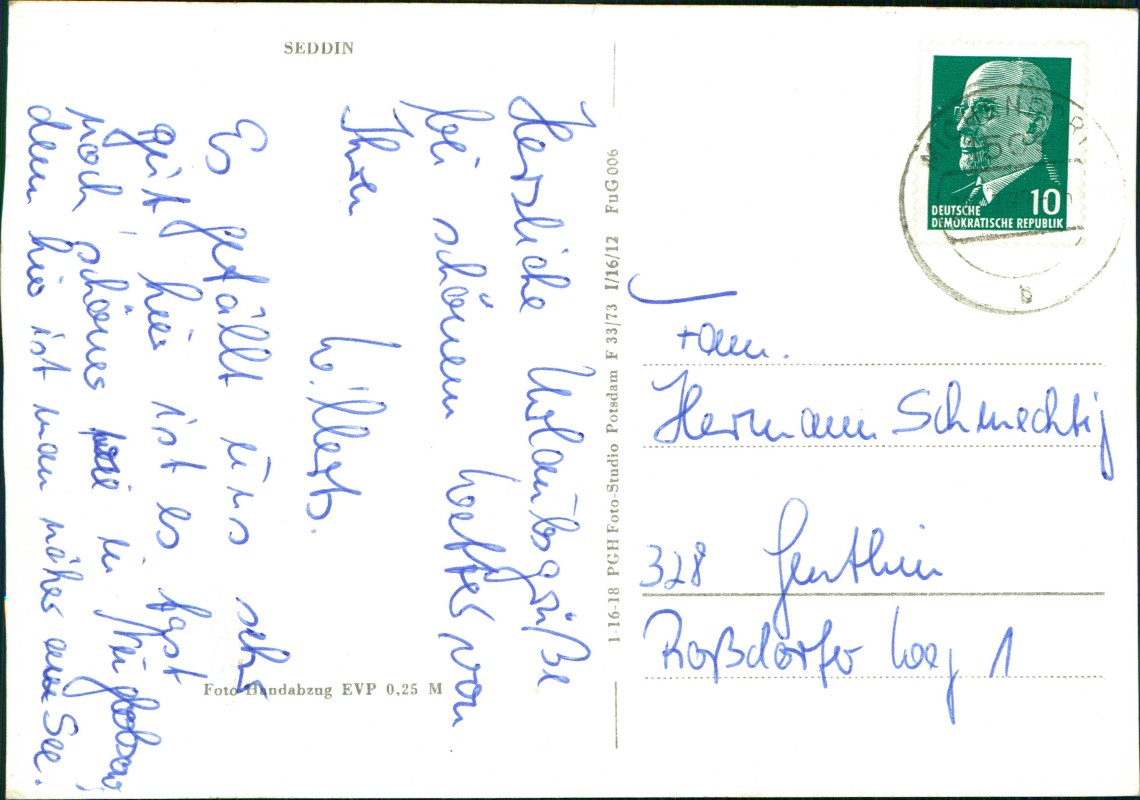 SEDDIN
Herzliche Urlaubsgrüße
bei schönem Wetter von
Ihren
W.
Es gefällt uns sehr
gut, hier ist es fast
noch schöner in
denn hier ist man näher am See.
Foto Handabzug EVP 0,25 M
1-16-18 PGH Foto-Studio Potsdam F 33/73 I/16/12 FuG 006
DEUTSCHE
DEMOKRATISCHE REPUBLIK
10
b
Fam.
Hermann Schmechtig
328 Genthin
Roßdorfer Weg 1